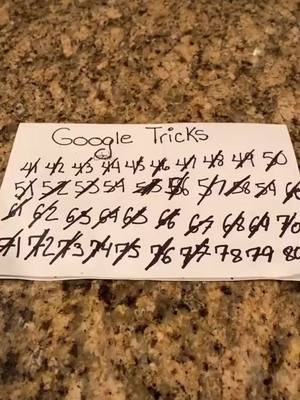 Google Tricks
41 42 43 44 45 46 47 48 49 50
51 52 53 54 55 56 57 58 59 60
61 62 63 64 65 66 67 68 69 70
71 72 73 74 75 76 77 78 79 80